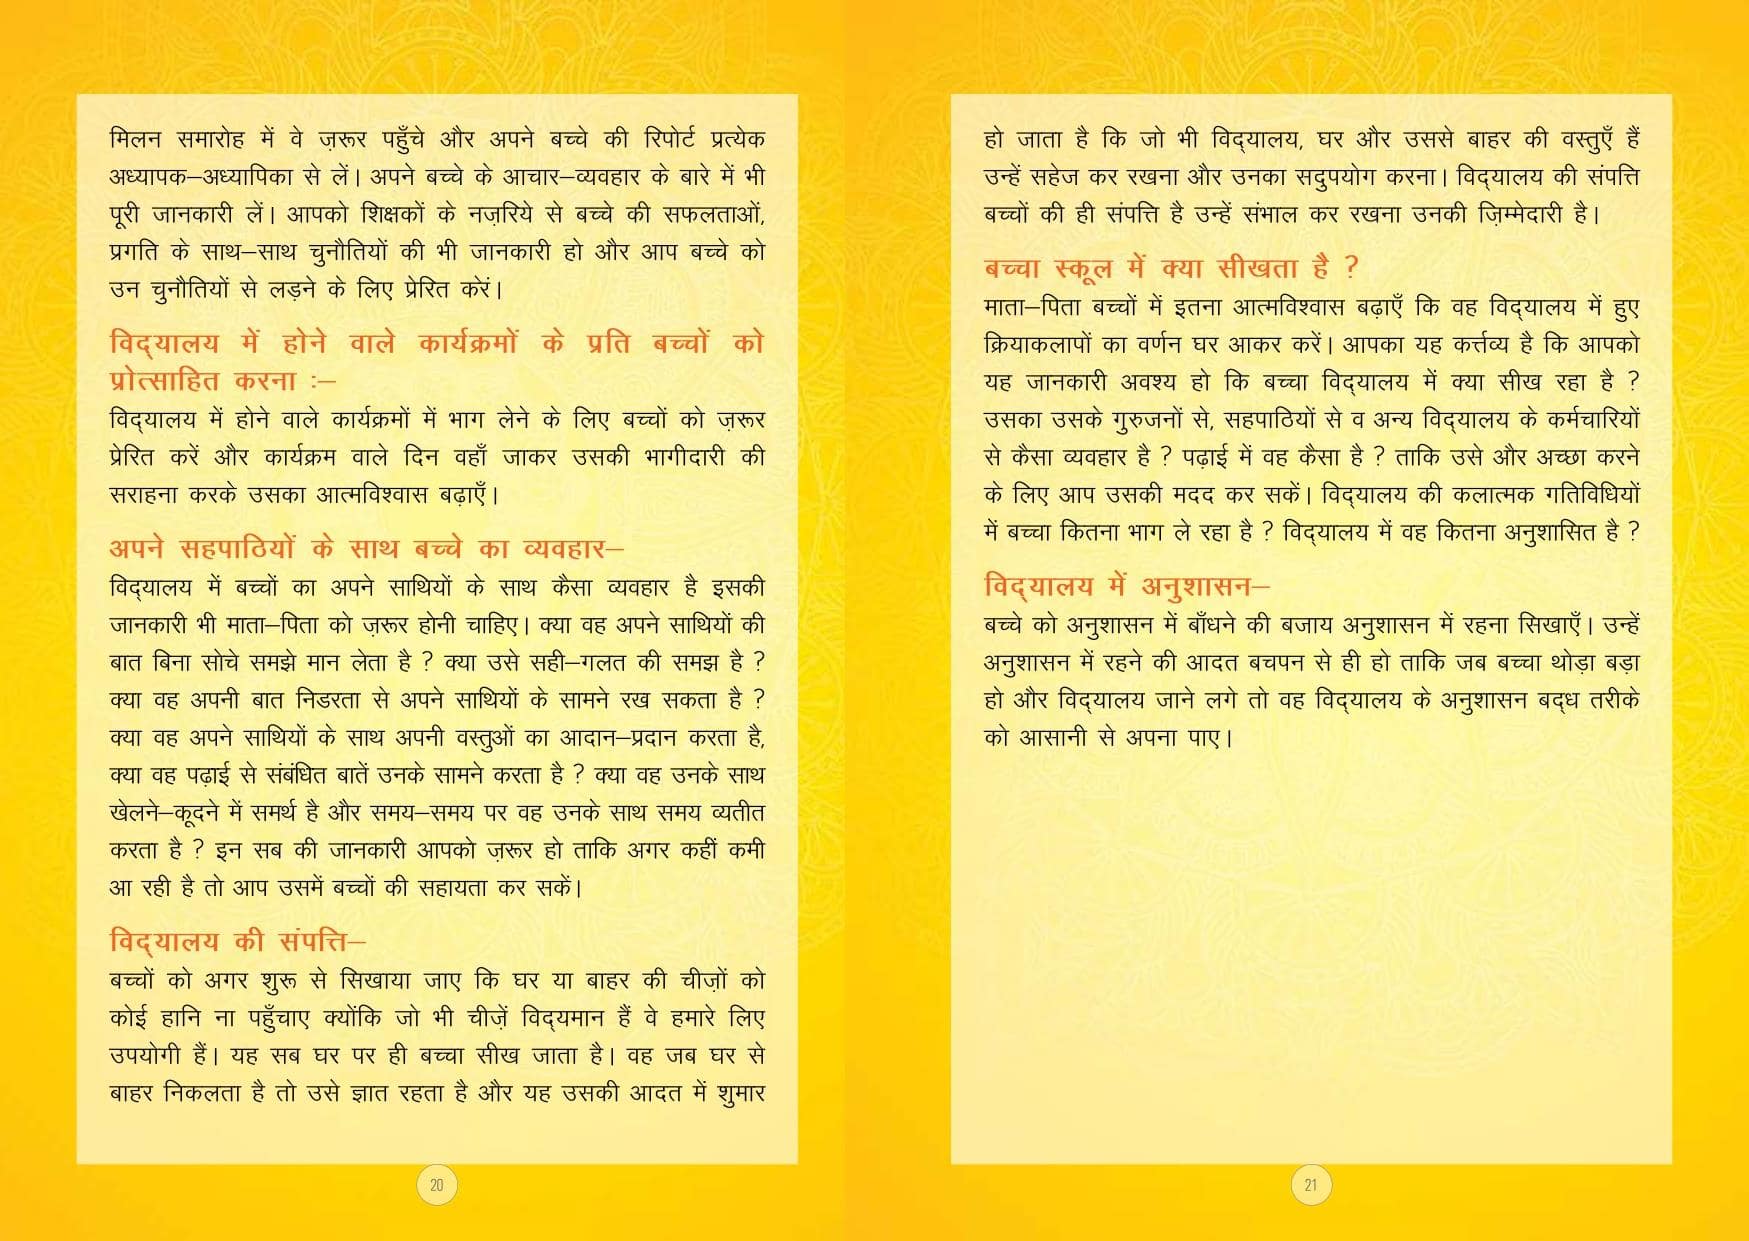 मिलन समारोह में वे ज़रूर पहुँचे और अपने बच्चे की रिपोर्ट प्रत्येक
अध्यापक–अध्यापिका से लें। अपने बच्चे के आचार–व्यवहार के बारे में भी
पूरी जानकारी लें। आपको शिक्षकों के नज़रिये से बच्चे की सफलताओं,
प्रगति के साथ–साथ चुनौतियों की भी जानकारी हो और आप बच्चे को
उन चुनौतियों से लड़ने के लिए प्रेरित करेंं।
विद्‌यालय में होने वाले कार्यक्रमों के प्रति बच्चों को
प्रोत्साहित करना :–
विद्‌यालय में होने वाले कार्यक्रमों में भाग लेने के लिए बच्चों को ज़रूर
प्रेरित करें और कार्यक्रम वाले दिन वहाँ जाकर उसकी भागीदारी की
सराहना करके उसका आत्मविश्वास बढ़ाएँ।
अपने सहपाठियों के साथ बच्चे का व्यवहार–
विद्‌यालय में बच्चों का अपने साथियों के साथ कैसा व्यवहार है इसकी
जानकारी भी माता–पिता को ज़रूर होनी चाहिए। क्या वह अपने साथियों की
बात बिना सोचे समझे मान लेता है ? क्या उसे सही–गलत की समझ है ?
क्या वह अपनी बात निडरता से अपने साथियों के सामने रख सकता है ?
क्या वह अपने साथियों के साथ अपनी वस्तुओं का आदान–प्रदान करता है,
क्या वह पढ़ाई से संबंधित बातें उनके सामने करता है ? क्या वह उनके साथ
खेलने–कूदने में समर्थ है और समय–समय पर वह उनके साथ समय व्यतीत
करता है ? इन सब की जानकारी आपको ज़रूर हो ताकि अगर कहीं कमी
आ रही है तो आप उसमें बच्चों की सहायता कर सकें।
विद्‌यालय की संपत्ति–
बच्चों को अगर शुरू से सिखाया जाए कि घर या बाहर की चीज़ों को
कोई हानि ना पहुँचाए क्योंकि जो भी चीज़ें विद्‌यमान हैं वे हमारे लिए
उपयोगी हैं। यह सब घर पर ही बच्चा सीख जाता है। वह जब घर से
बाहर निकलता है तो उसे ज्ञात रहता है और यह उसकी आदत में शुमार
20
हो जाता है कि जो भी विद्‌यालय, घर और उससे बाहर की वस्तुएँ हैं
उन्हें सहेज कर रखना और उनका सदुपयोग करना। विद्‌यालय की संपत्ति
बच्चों की ही संपत्ति है उन्हें संभाल कर रखना उनकी ज़िम्मेदारी है।
बच्चा स्कूल में क्या सीखता है ?
माता–पिता बच्चों में इतना आत्मविश्वास बढ़ाएँ कि वह विद्‌यालय में हुए
क्रियाकलापों का वर्णन घर आकर करें। आपका यह कर्त्तव्य है कि आपको
यह जानकारी अवश्य हो कि बच्चा विद्‌यालय में क्या सीख रहा है ?
उसका उसके गुरुजनों से, सहपाठियों से व अन्य विद्‌यालय के कर्मचारियों
से कैसा व्यवहार है ? पढ़ाई में वह कैसा है ? ताकि उसे और अच्छा करने
के लिए आप उसकी मदद कर सकें। विद्‌यालय की कलात्मक गतिविधियों
में बच्चा कितना भाग ले रहा है ? विद्‌यालय में वह कितना अनुशासित है ?
विद्‌यालय में अनुशासन–
बच्चे को अनुशासन में बाँधने की बजाय अनुशासन में रहना सिखाएँ। उन्हें
अनुशासन में रहने की आदत बचपन से ही हो ताकि जब बच्चा थोड़ा बड़ा
हो और विद्‌यालय जाने लगे तो वह विद्‌यालय के अनुशासन बद्‌ध तरीके
को आसानी से अपना पाए।
21